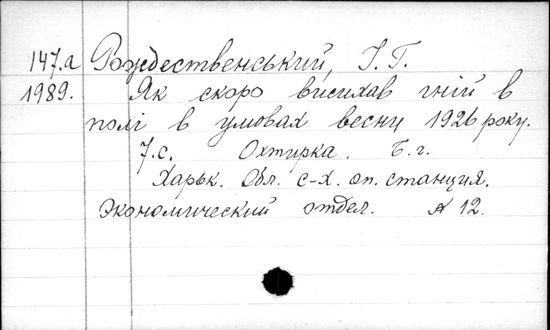 147.а Рождественський, І. Г.
1989. Як скоро висихав гній в
полі в умовах весни 1926 року.
7 с. Охтирка. Б. г.
Харьк. Обл. с-х. оп. станция.
Экономический отдел. № 12.